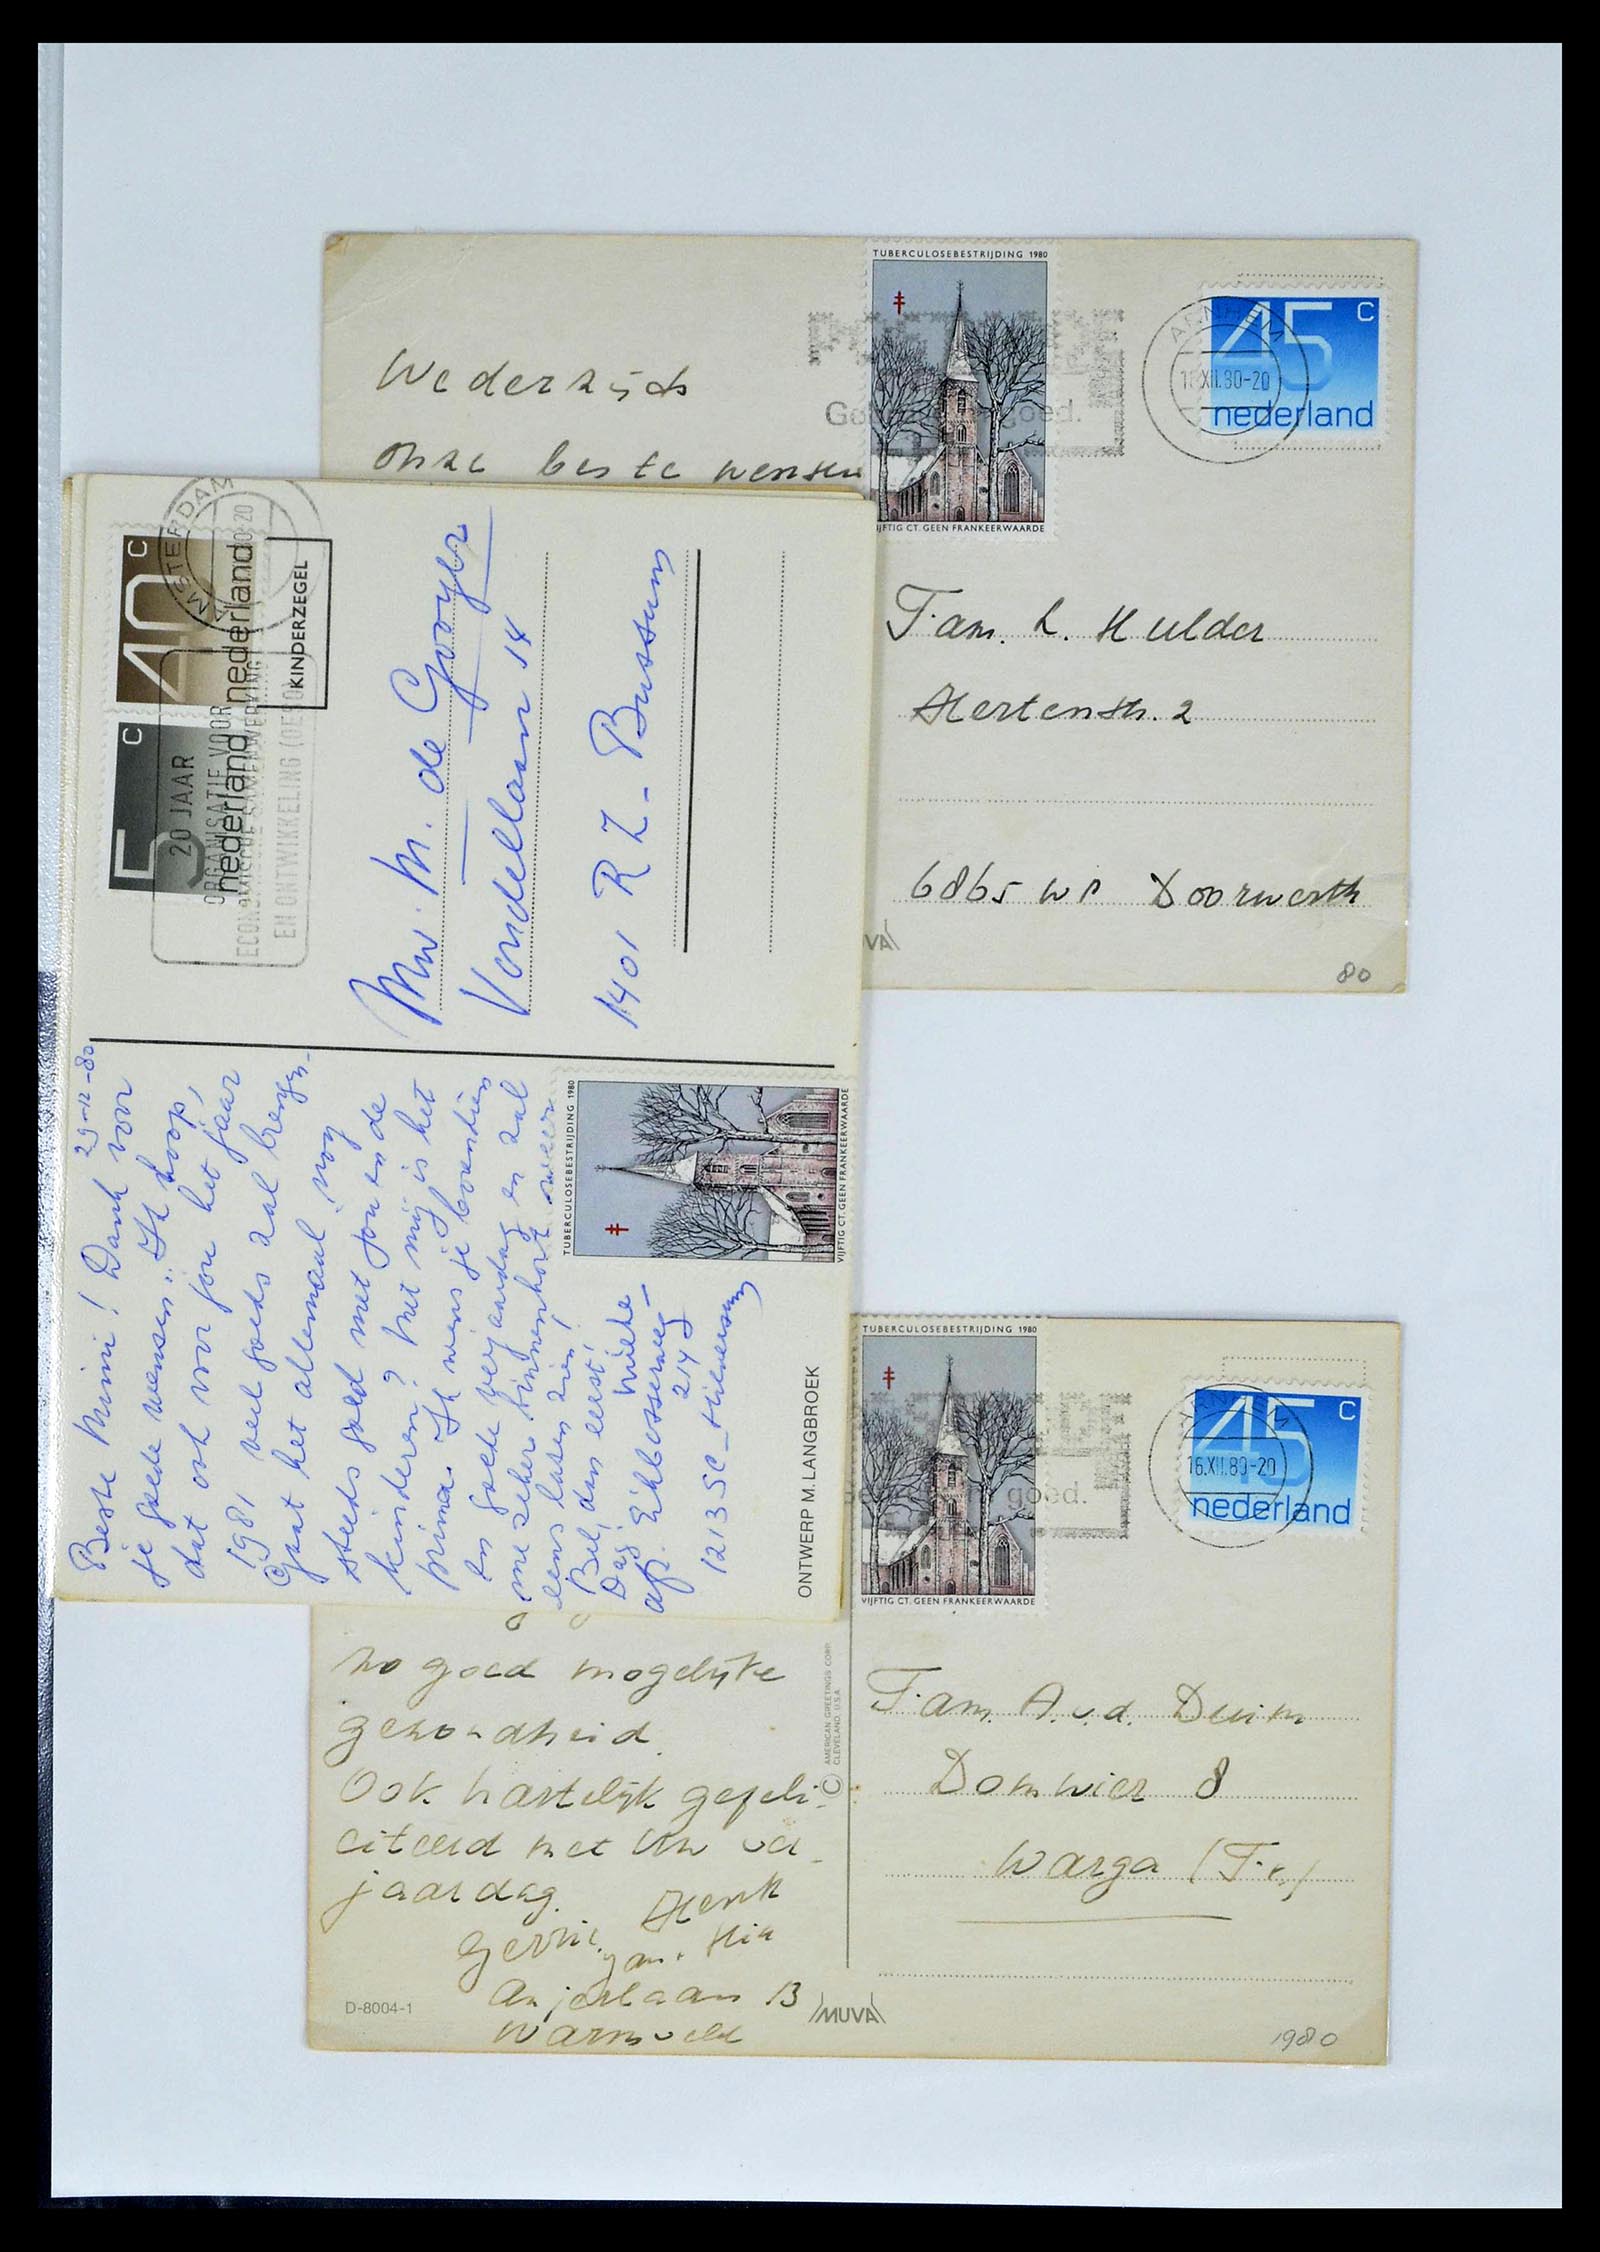 TUBERCULOSEBESTRIJDING 1980
IJFTIG CT. GEEN FRANKEERWAARDE
ARNHEM
XII.80-20
45 c
nederland
goed.
Wederzijds
onze beste wensen
Fam. L. Hulder
Hertenstr. 2
6865 WP Doorwerth
VA
80
AMSTERDAM
40 c
nederland
5 c
nederland
KINDERZEGEL
20 JAAR
ORGANISATIE VOOR
ECONOMISCHE SAMENWERKING
EN ONTWIKKELING (OESO)
Mw. M. de Gooyer
Vondellaan 14
1401 RZ - Bussum
29-12-80
Beste Mimi! Dank voor
je goede wensen. Ik hoop,
dat ook voor jou het jaar
1981 veel goeds zal brengen.
Gaat het allemaal nog
steeds goed met jou en de
kinderen? Met mij is het
prima. Ik wens je bovendien
en goede verjaardag en zal
me zeker binnenkort weer
eens laten zien!
Bel dan eerst!
Dag Mieke
afz. Eikbosserweg
214
1213 SC - Hilversum
TUBERCULOSEBESTRIJDING 1980
VIJFTIG CT. GEEN FRANKEERWAARDE
ONTWERP M. LANGBROEK
TUBERCULOSEBESTRIJDING 1980
VIJFTIG CT. GEEN FRANKEERWAARDE
goed.
16.XII.80-20
45 c
nederland
zo goed mogelijke
gezondheid.
Ook hartelijk gefeli-
citeerd met Uw ver-
jaardag.
Henk
Gerrie. Jan. Mia
Anjerlaan 13
Warnsveld
D-8004-1
© AMERICAN GREETINGS CORP.
CLEVELAND, U.S.A.
MUVA
Fam. A. v.d. Duim
Domwier 8
Warga (Fr.)
1980